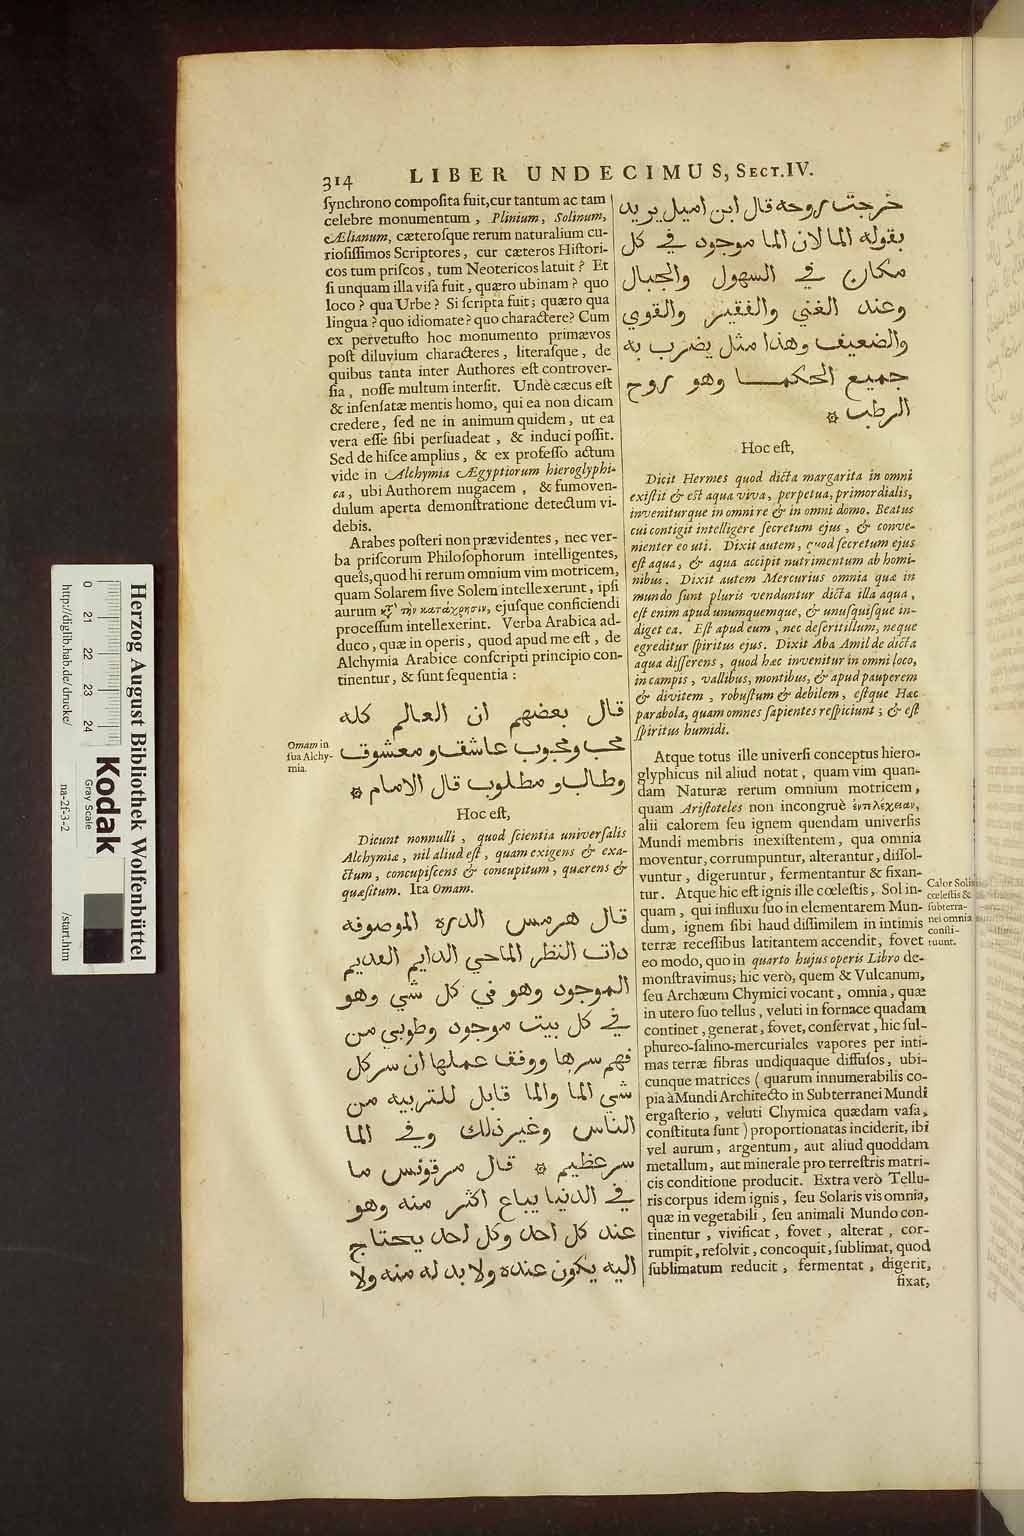 314 LIBER UNDECIMUS, SECT. IV.
ſynchrono compoſita fuit, cur tantum ac tam
celebre monumentum, Plinium, Solinum,
Ælianum, cæteroſque rerum naturalium cu-
rioſiſſimos Scriptores, cur cæteros Hiſtori-
cos tum priſcos, tum Neotericos latuit? Et
ſi unquam illa viſa fuit, quæro ubinam? quo
loco? qua Urbe? Si ſcripta fuit; quæro qua
lingua? quo idiomate? quo charactere? Cum
ex pervetuſto hoc monumento primævos
poſt diluvium characteres, literaſque, de
quibus tanta inter Authores eſt controver-
ſia, noſſe multum interſit. Undè cæcus eſt
& inſenſatæ mentis homo, qui ea non dicam
credere, ſed ne in animum quidem, ut ea
vera eſſe ſibi perſuadeat, & induci poſſit.
Sed de hiſce amplius, & ex profeſſo actum
vide in Alchymia Ægyptiorum hieroglyphi-
ca, ubi Authorem nugacem, & fumoven-
dulum aperta demonſtratione detectum vi-
debis.
Arabes poſteri non prævidentes, nec ver-
ba priſcorum Philoſophorum intelligentes,
queîs, quod hi rerum omnium vim motricem,
quam Solarem ſive Solem intellexerunt, ipſi
aurum κτ̀ τὴν κατάχρησιν, ejuſque conficiendi
proceſſum intellexerint. Verba Arabica ad-
duco, quæ in operis, quod apud me eſt, de
Alchymia Arabice conſcripti principio con-
tinentur, & ſunt ſequentia:
قال بعضهم ان العالم كله
محب ومحبوب عاشق ومعشوق
وطالب ومطلوب قال الامام ۞
Omam in
ſua Alchy-
mia.
Hoc eſt,
Dicunt nonnulli, quod ſcientia univerſalis
Alchymiæ, nil aliud eſt, quam exigens & exa-
ctum, concupiſcens & concupitum, quærens &
quæſitum. Ita Omam.
قال هرمس الدره الموصوفه
دات النظر الماحي الدايم العديم
الموجود وهو في كل شي وهو
في كل بيت موجود وطوبي من
فهم سرها ووفق عملها ان سر كل
شي الما والما قابل للتربيه من
الناس وغير ذلك وفي الما
سر عظيم ۞ قال مرقونس ما
في الدنيا يباع اكثر منه وهو
عند كل احد وكل احد يحتاج
اليه يكون عنده ولا بد له منه ولا
خرجت روحه قال ابن اميل يريد
بقوله الما لان الما موجود في كل
مكان في السهول والجبال
وعند الغني والفقير والقوي
والضعيف وهذا مثل يضرب به
جميع الحكما وهو روح
الرطب ۞
Hoc eſt,
Dicit Hermes quod dicta margarita in omni
exiſtit & eſt aqua viva, perpetua, primordialis,
inveniturque in omni re & in omni domo. Beatus
cui contigit intelligere ſecretum ejus, & conve-
nienter eo uti. Dixit autem, quod ſecretum ejus
eſt aqua, & aqua accipit nutrimentum ab homi-
nibus. Dixit autem Mercurius omnia quæ in
mundo ſunt pluris venduntur dicta illa aqua,
eſt enim apud unumquemque, & unuſquiſque in-
diget ea. Eſt apud eum, nec deſerit illum, neque
egreditur ſpiritus ejus. Dixit Aba Amil de dicta
aqua diſſerens, quod hæc invenitur in omni loco,
in campis, vallibus, montibus, & apud pauperem
& divitem, robuſtum & debilem, eſtque Hæc
parabola, quam omnes ſapientes reſpiciunt; & eſt
ſpiritus humidi.
Atque totus ille univerſi conceptus hiero-
glyphicus nil aliud notat, quam vim quan-
dam Naturæ rerum omnium motricem,
quam Ariſtoteles non incongruè ἐντελέχειαν,
alii calorem ſeu ignem quendam univerſis
Mundi membris inexiſtentem, qua omnia
moventur, corrumpuntur, alterantur, diſſol-
vuntur, digeruntur, fermentantur & fixan-
tur. Atque hic eſt ignis ille cœleſtis, Sol in-
quam, qui influxu ſuo in elementarem Mun-
dum, ignem ſibi haud diſſimilem in intimis
terræ receſſibus latitantem accendit, fovet
eo modo, quo in quarto hujus operis Libro de-
monſtravimus; hic verò, quem & Vulcanum,
ſeu Archæum Chymici vocant, omnia, quæ
in utero ſuo tellus, veluti in fornace quadam
continet, generat, fovet, conſervat, hic ſul-
phureo-ſalino-mercuriales vapores per inti-
mas terræ fibras undiquaque diffuſos, ubi-
cunque matrices (quarum innumerabilis co-
pia à Mundi Architecto in Subterranei Mundi
ergaſterio, veluti Chymica quædam vaſa,
conſtituta ſunt) proportionatas inciderit, ibi
vel aurum, argentum, aut aliud quoddam
metallum, aut minerale pro terreſtris matri-
cis conditione producit. Extra verò Tellu-
ris corpus idem ignis, ſeu Solaris vis omnia,
quæ in vegetabili, ſeu animali Mundo con-
tinentur, vivificat, fovet, alterat, cor-
rumpit, reſolvit, concoquit, ſublimat, quod
ſublimatum reducit, fermentat, digerit,
fixat,
Calor Solis
cœleſtis &
ſubterra-
nei omnia
conſti-
tuunt.
Herzog August Bibliothek Wolfenbüttel
Kodak
Gray Scale
0 21 22 23 24
http://diglib.hab.de/drucke/
na-2f-3-2
/start.htm